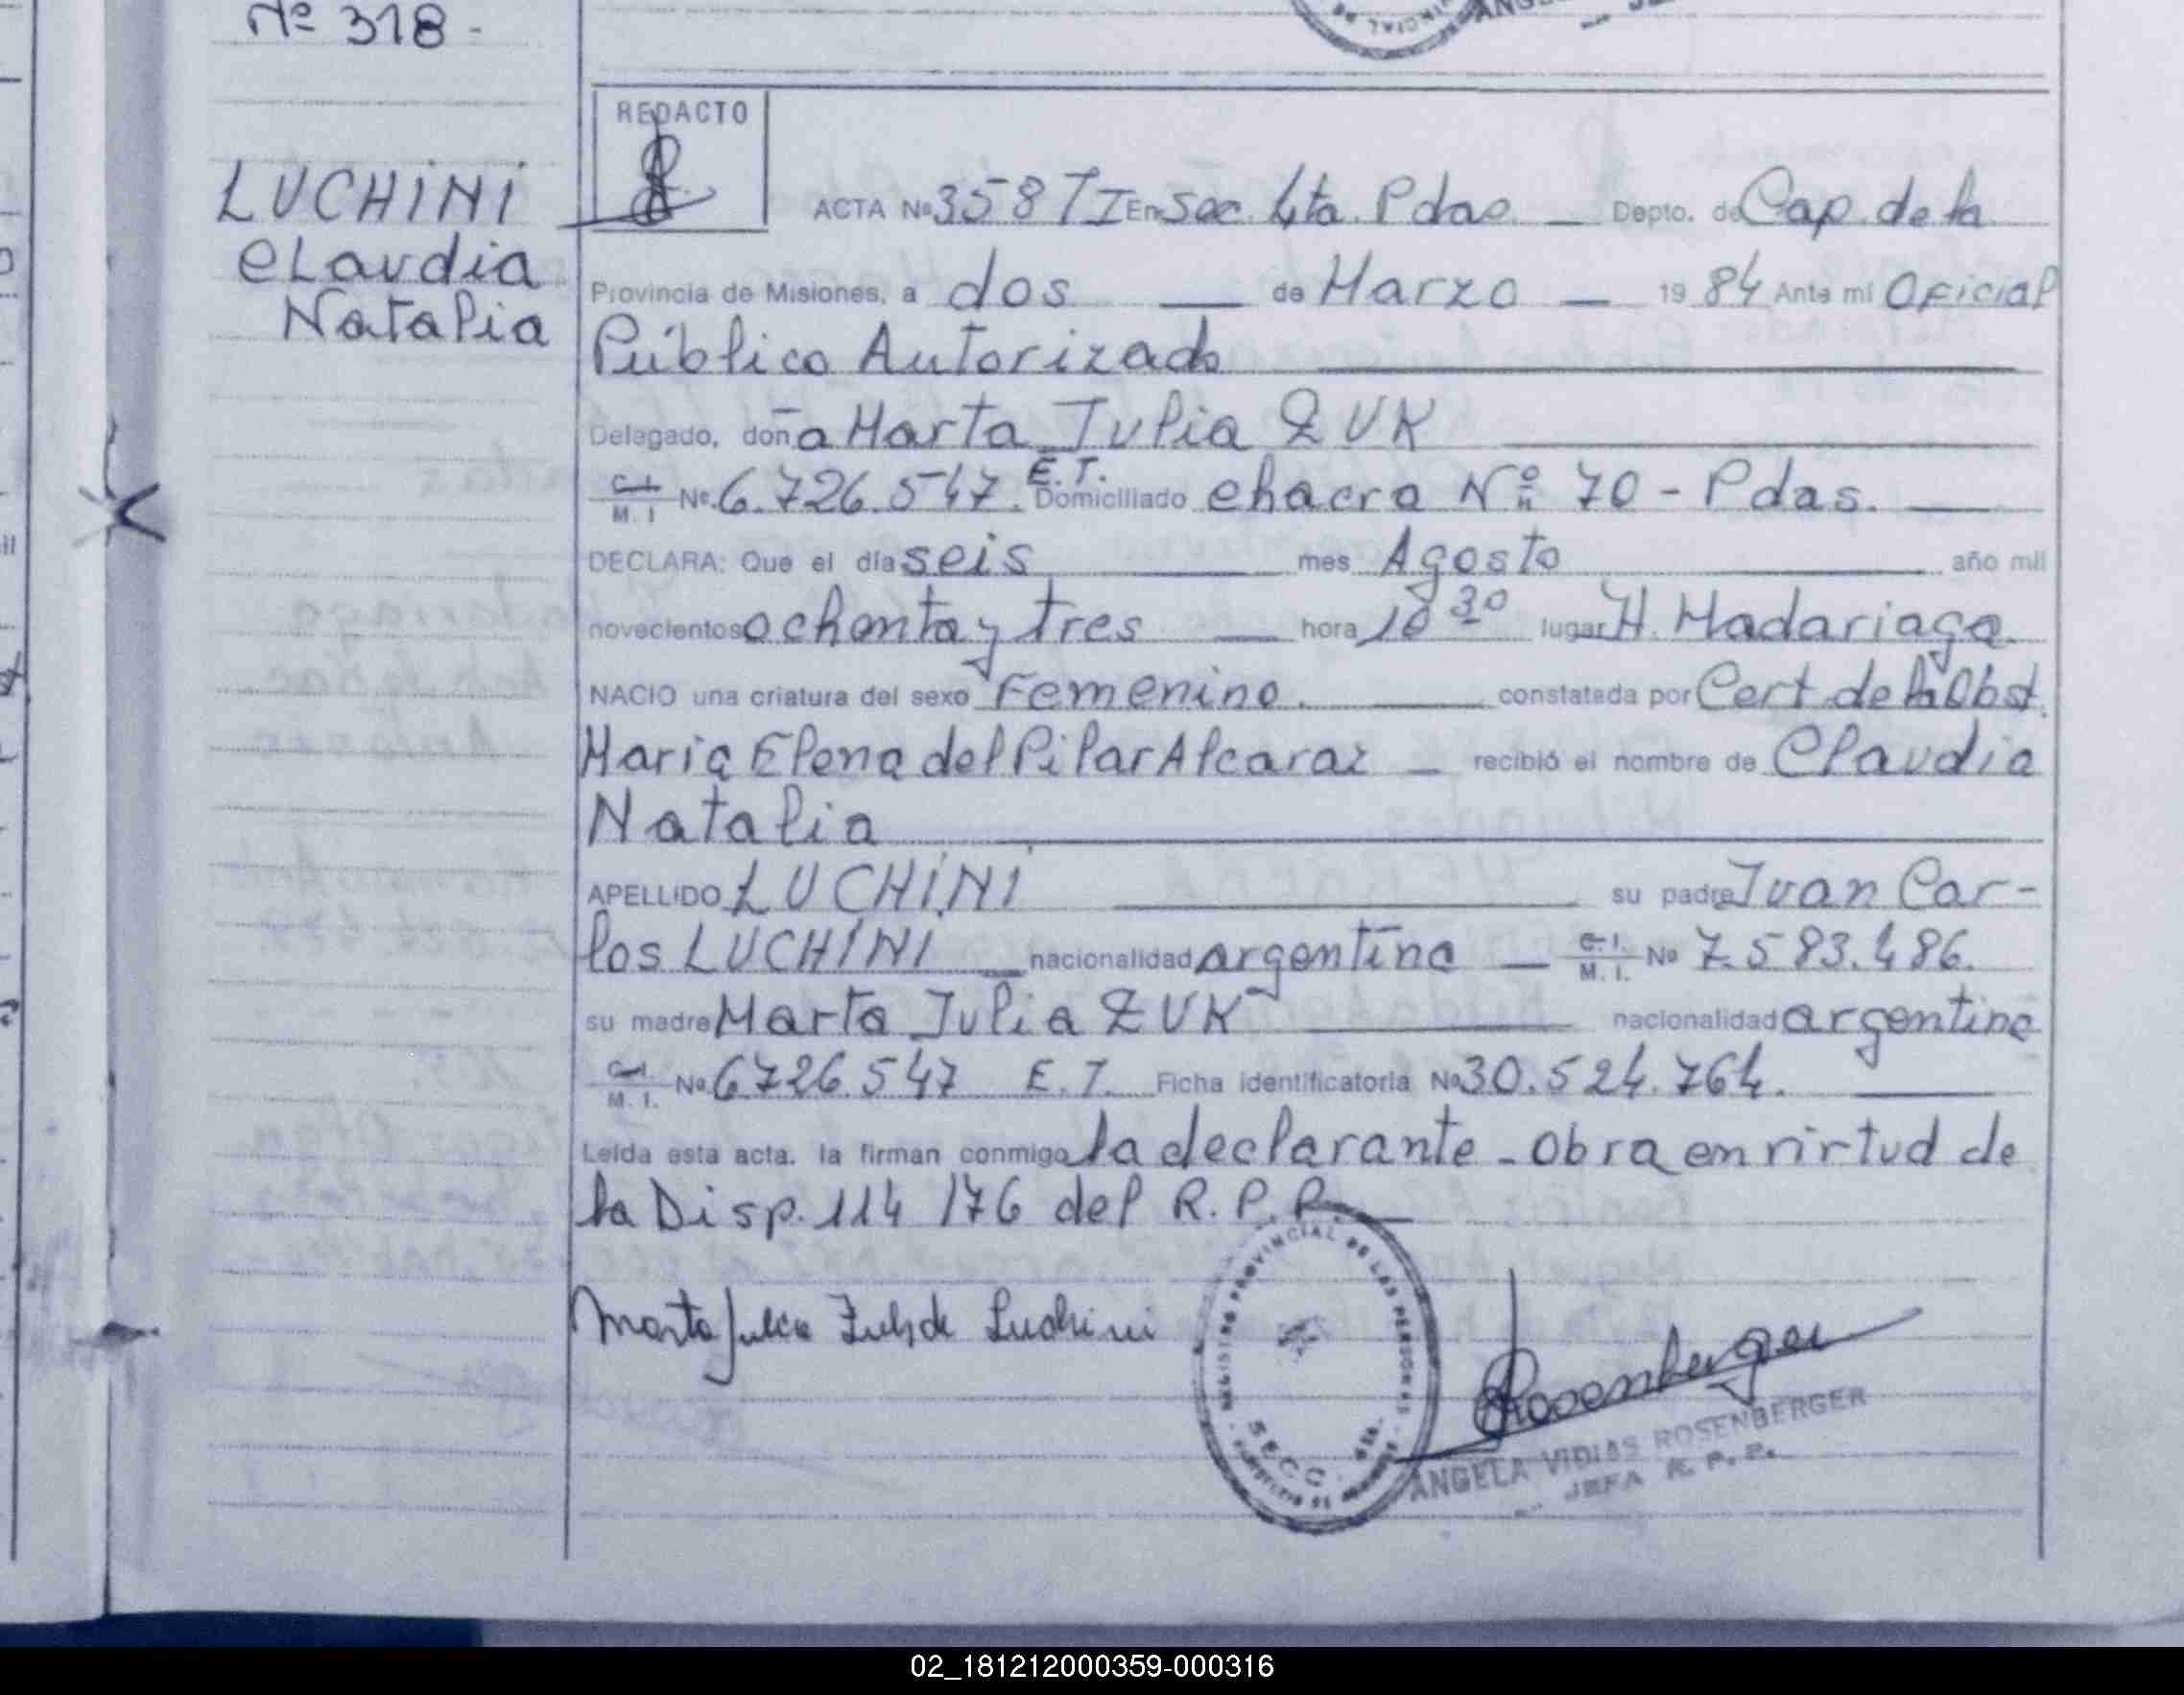 Nº 318 -
REDACTO
LUCHINI
Claudia
Natalia
ACTA Nº 358 T I En Sec. 4ta. Pdas. — Depto. de Cap. de la
Provincia de Misiones, a dos — de Marzo — 19 84 Ante mi Oficial
Público Autorizado
Delegado, doña Marta Julia ZUK
C.I. M.I. Nº 6.726.547. E.T. Domiciliado chacra Nº 70 - Pdas. —
DECLARA: Que el día seis — mes Agosto — año mil
novecientos ochenta y tres — hora 10 30 lugar H. Madariaga.
NACIO una criatura del sexo Femenino. — constatada por Cert. de la Obst.
Maria Elena del Pilar Alcaraz — recibió el nombre de Claudia
Natalia
APELLIDO LUCHINI — su padre Juan Car-
los LUCHINI — nacionalidad argentina — C.I. M.I. Nº 7.583.486.
su madre Marta Julia ZUK — nacionalidad argentina
C.I. M.I. Nº 6726.547 E.T. Ficha identificatoria Nº 30.524.764. —
Leída esta acta. la firman conmigo la declarante - Obra en virtud de
la Disp. 114 /76 del R.P.P. —
Marta Julia Zuk de Luchini
REGISTRO PROVINCIAL DE LAS PERSONAS
SECC. 4ta.
Rosenberger
ANGELA VIDIAS ROSENBERGER
JEFA R. P. P.
02_181212000359-000316